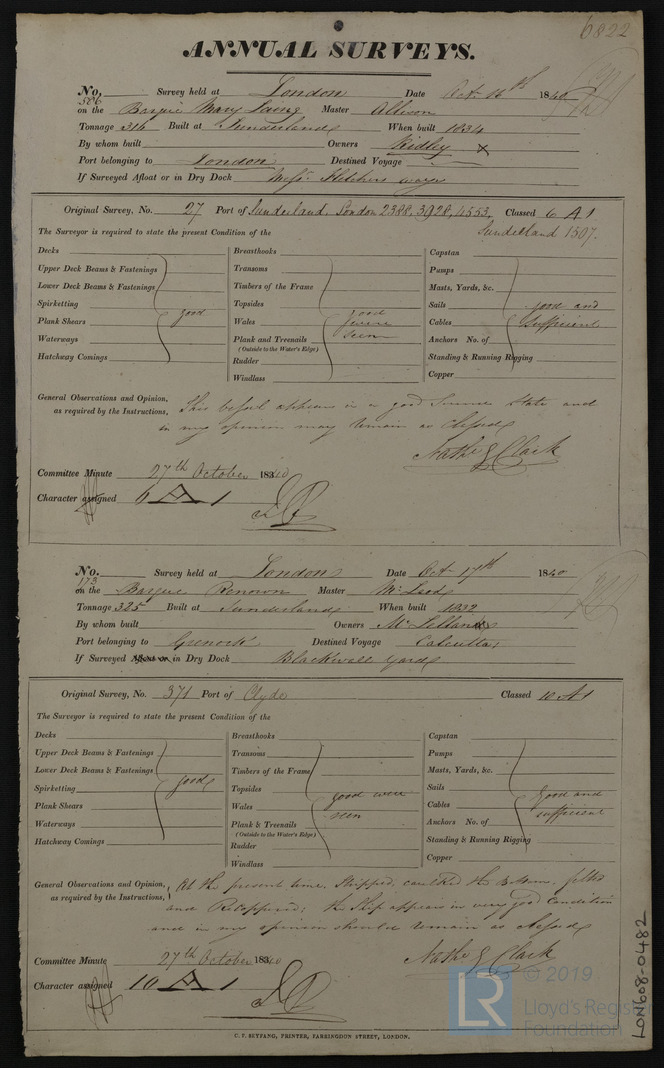 6822
ANNUAL SURVEYS.
No. 506 Survey held at London Date Oct 16th 1840
on the Barque Mary Laing Master Allison
Tonnage 316 Built at Sunderland When built 1834
By whom built Owners Ridley x
Port belonging to London Destined Voyage
If Surveyed Afloat or in Dry Dock Messrs Fletchers
Original Survey, No. 27 Port of Sunderland. London 2388. 3928. 4553. Classed 6 A 1
The Surveyor is required to state the present Condition of the Sunderland 1507.
Decks Breasthooks Capstan
Upper Deck Beams & Fastenings Transoms Pumps
Lower Deck Beams & Fastenings Timbers of the Frame Masts, Yards, &c.
Spirketting Topsides Sails good and
Plank Shears good Wales good where Cables sufficient
Waterways Plank and Treenails seen Anchors No. of
(Outside to the Water's Edge)
Hatchway Comings Rudder Standing & Running Rigging
Windlass Copper
General Observations and Opinion, This vessel appears in a good state and
as required by the Instructions, in my opinion may remain as classed
Nathl G Clark
Committee Minute 27th October 1840
Character assigned 6 A 1
No. 173 Survey held at London Date Oct 17th 1840
on the Barque Renown Master McLeod
Tonnage 325 Built at Sunderland When built 1832
By whom built Owners McLellan
Port belonging to Grenock Destined Voyage Calcutta
If Surveyed Afloat or in Dry Dock Blackwall Yard
Original Survey, No. 371 Port of Clyde Classed 10 A 1
The Surveyor is required to state the present Condition of the
Decks Breasthooks Capstan
Upper Deck Beams & Fastenings Transoms Pumps
Lower Deck Beams & Fastenings Timbers of the Frame Masts, Yards, &c.
Spirketting good Topsides good were Sails good and
Plank Shears Wales seen Cables sufficient
Waterways Plank & Treenails Anchors No. of
(Outside to the Water's Edge)
Hatchway Comings Rudder Standing & Running Rigging
Windlass Copper
General Observations and Opinion, At the present time, Stripped, caulked the Bottom, felted
as required by the Instructions, and Recoppered; the Ship appears in very good Condition
and in my opinion should remain as classed
Nathl G Clark
Committee Minute 27th October 1840
Character assigned 10 A 1
C. F. SEYFANG, PRINTER, FARRINGDON STREET, LONDON.
LON608-0482
LR © 2019
Lloyd's Register
Foundation